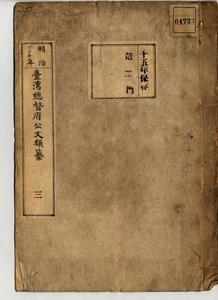 04723
十五年保存
第二門
明治
年
臺灣總督府公文類纂
三